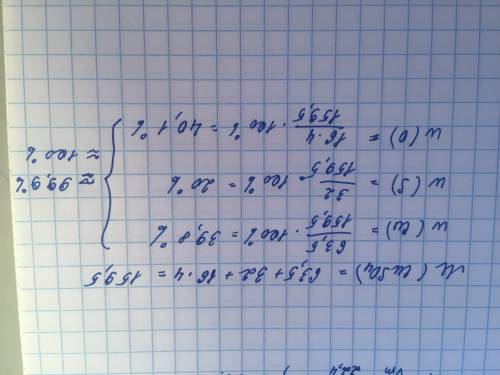 M(CuSO4) = 63,5 + 32 + 16·4 = 159,5
w(Cu) = 63,5/159,5 · 100% = 39,8%
w(S) = 32/159,5 · 100% = 20%
w(O) = 16·4/159,5 · 100% = 40,1%
≈ 99,9%
≈ 100%